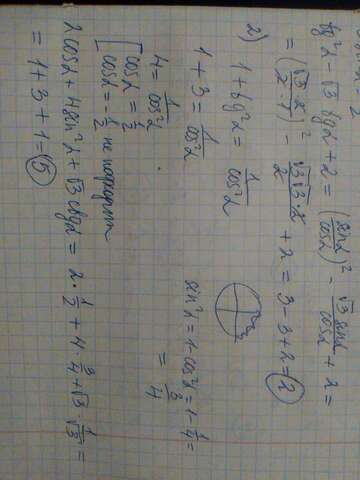 tg²α - √3 tgα + 2 = (sinα/cosα)² - √3 sinα/cosα + 2 =
= (√3·2/2·1)² - √3√3·2/2 + 2 = 3 - 3 + 2 = 2
2) 1 + tg²α = 1/cos²α
1 + 3 = 1/cos²α
4 = 1/cos²α
[cosα = 1/2
cosα = -1/2 не подходит
sin²α = 1 - cos²α = 1 - 1/4 =
= 3/4
2cosα + 4sin²α + √3 ctgα = 2·1/2 + 4·3/4 + √3·1/√3 =
= 1 + 3 + 1 = 5